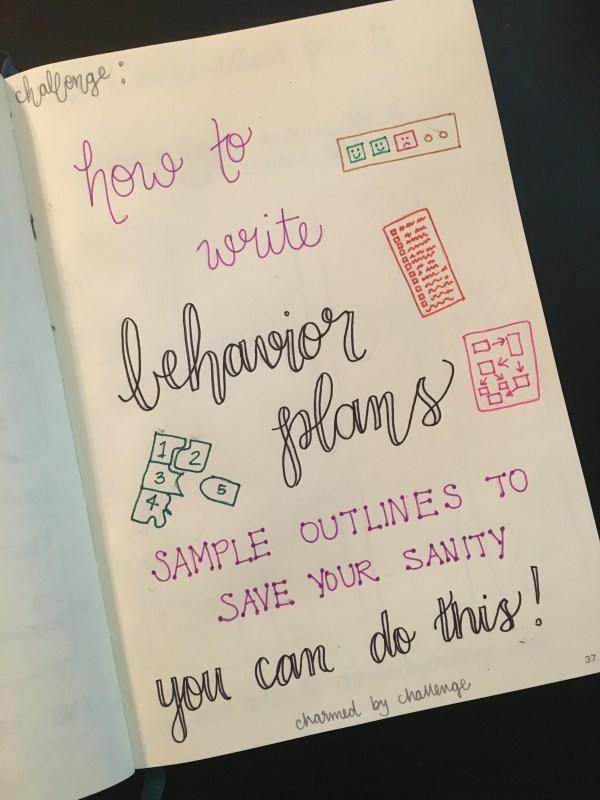 challenge:
how to
write
behavior
plans
1 2
3
5
4
SAMPLE OUTLINES TO
SAVE YOUR SANITY
you can do this!
charmed by challenge
37